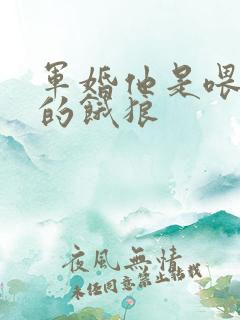 軍婚他是喂
的餓狼
夜風無情
未經同意禁止轉載